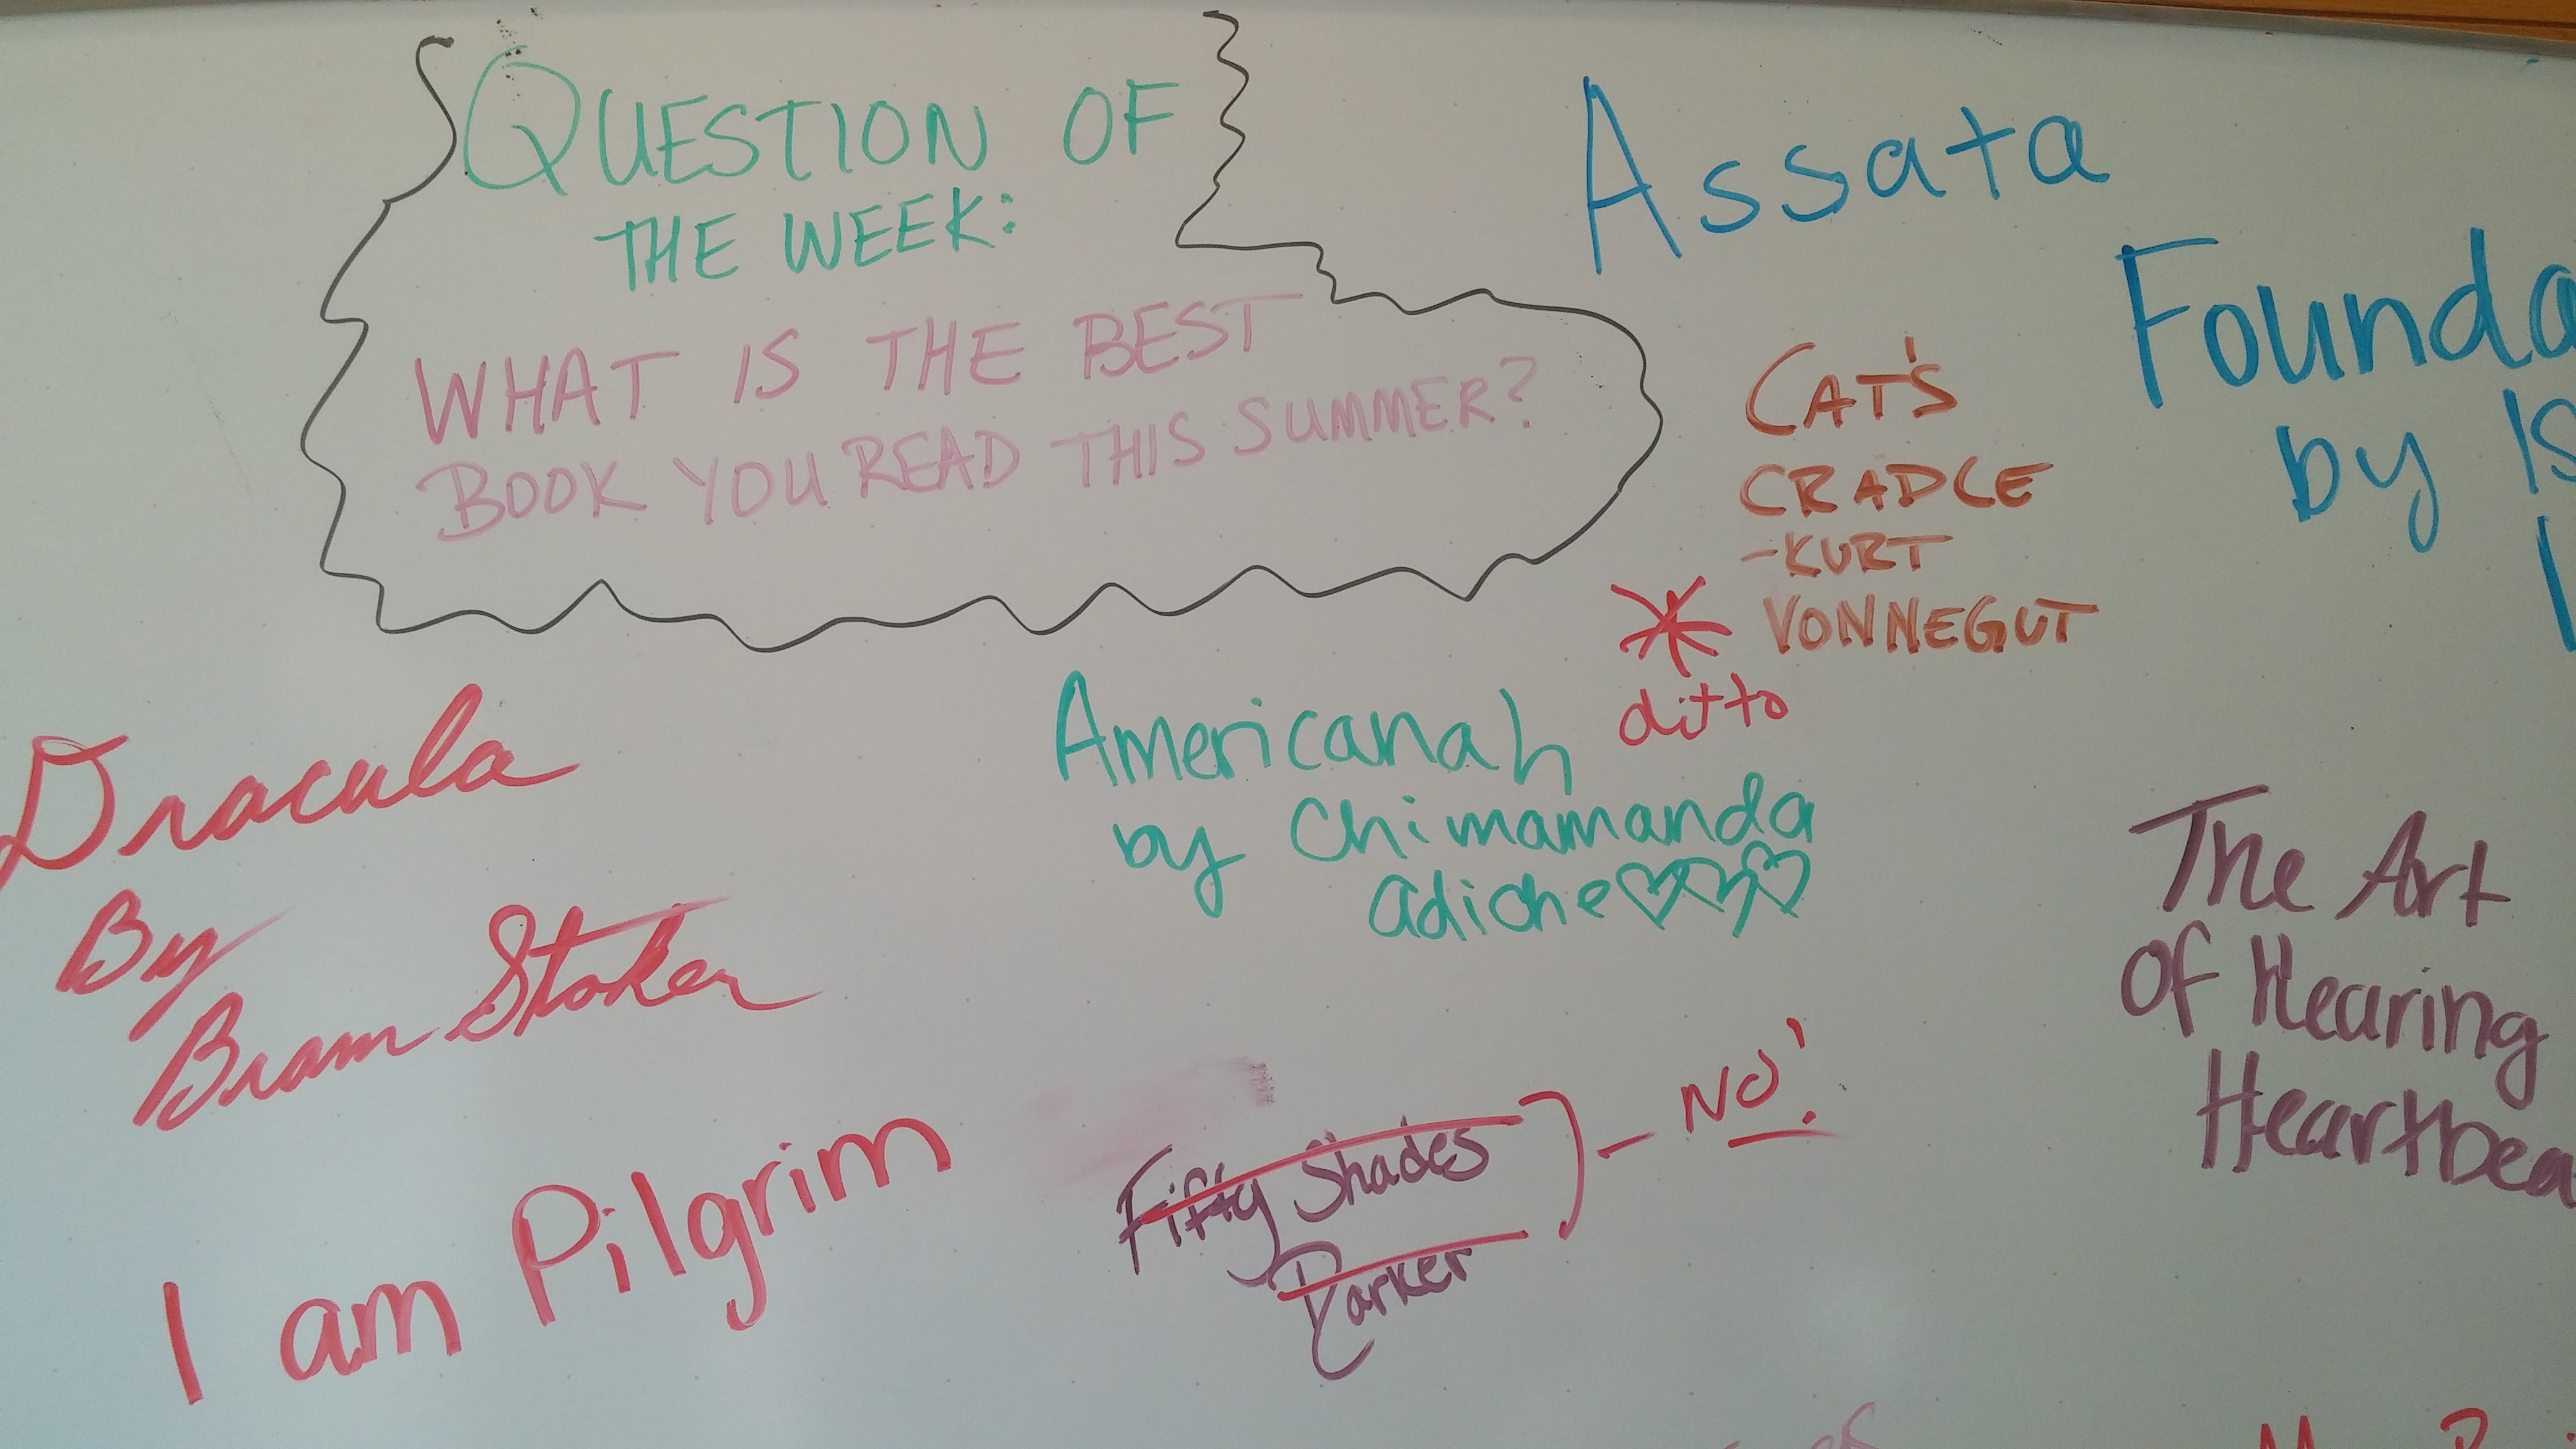 QUESTION OF
THE WEEK:
WHAT IS THE BEST
BOOK YOU READ THIS SUMMER?
Assata
CAT'S
CRADLE
-KURT
VONNEGUT
ditto
by
Americanah
by Chimamanda
adiche
Dracula
By
Bram Stoker
I am Pilgrim
Fifty Shades
Darker
- NO!
The Art
Of Hearing